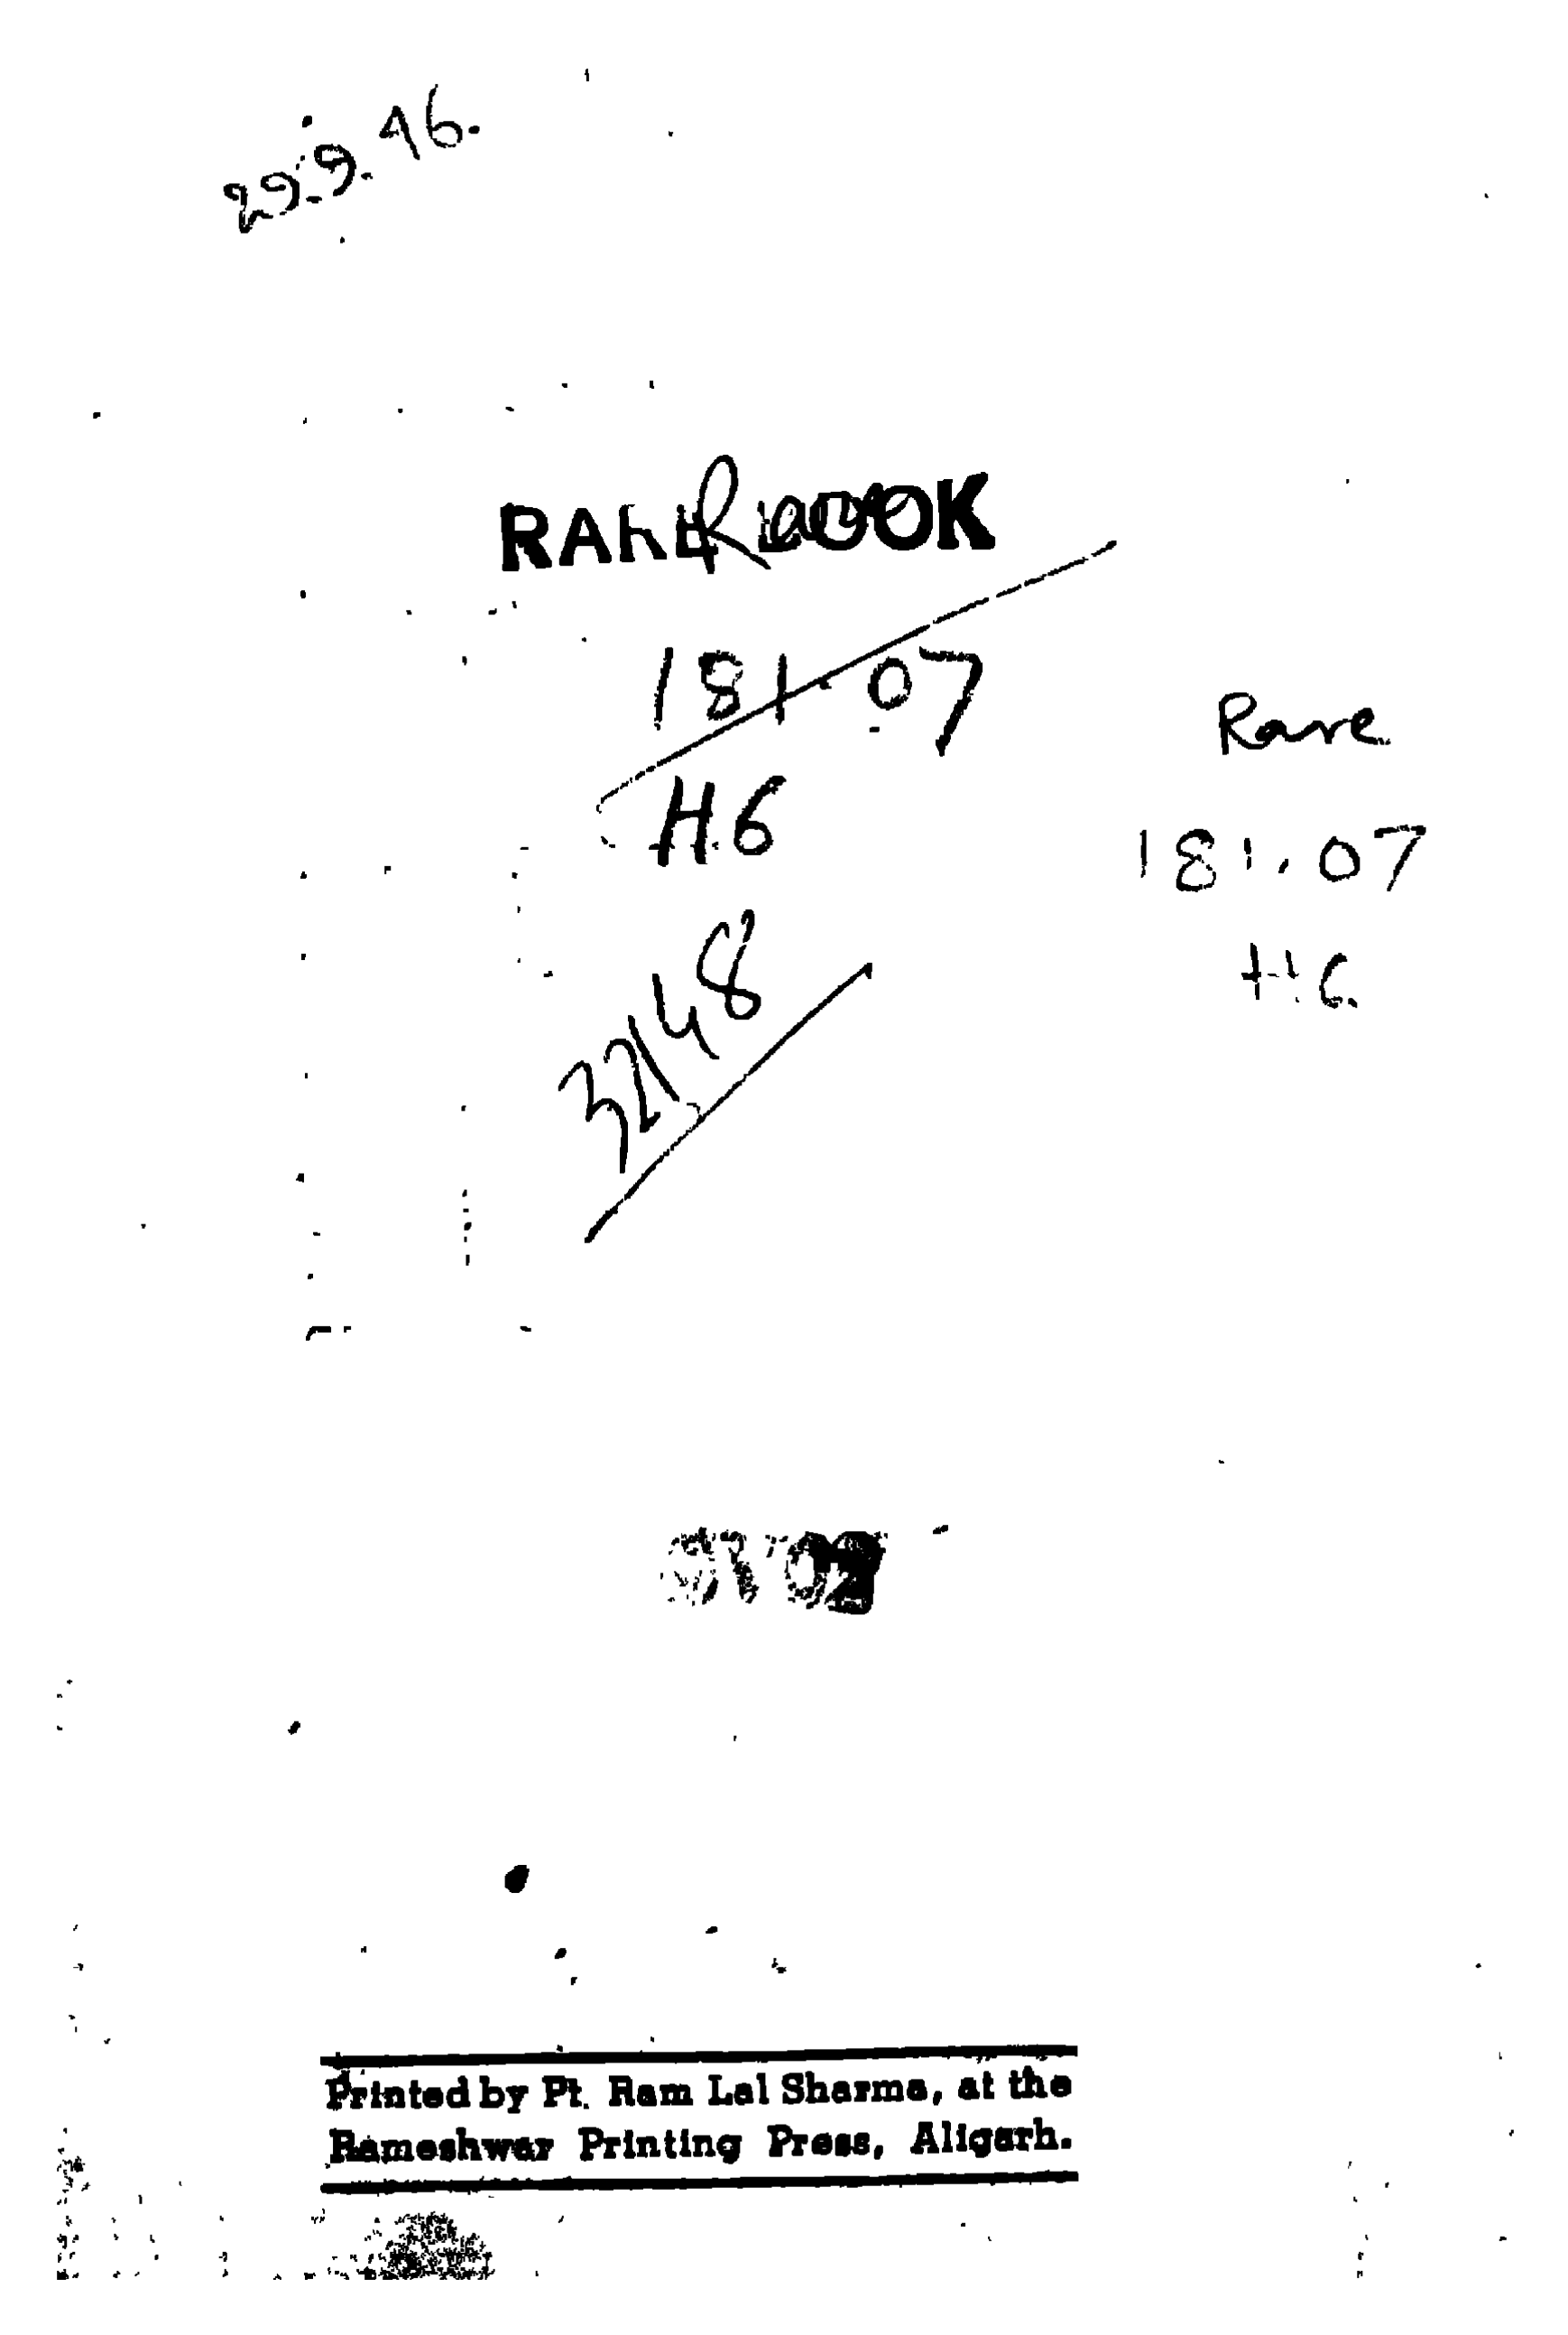 29.9.46.
RARE BOOK
Rare
181.07
H6
32148
Rare
181.07
H6
Printed by Pt. Ram Lal Sharma, at the
Rameshwar Printing Press, Aligarh.